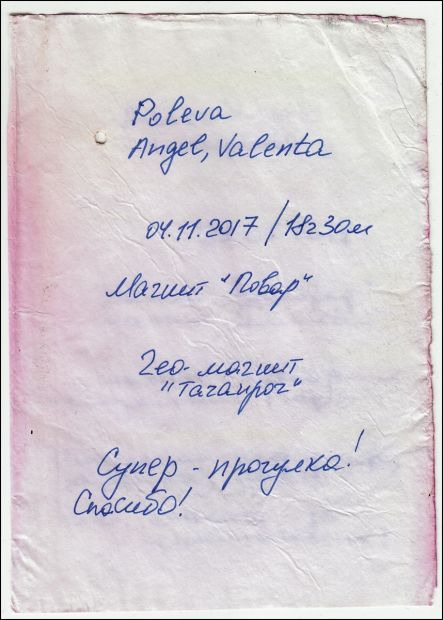 Poleva
Angel, Valenta
04.11.2017 / 18ч30м
Магнит "Повар"
Гео-магнит
"Таганрог"
Супер - прогулка!
Спасибо!